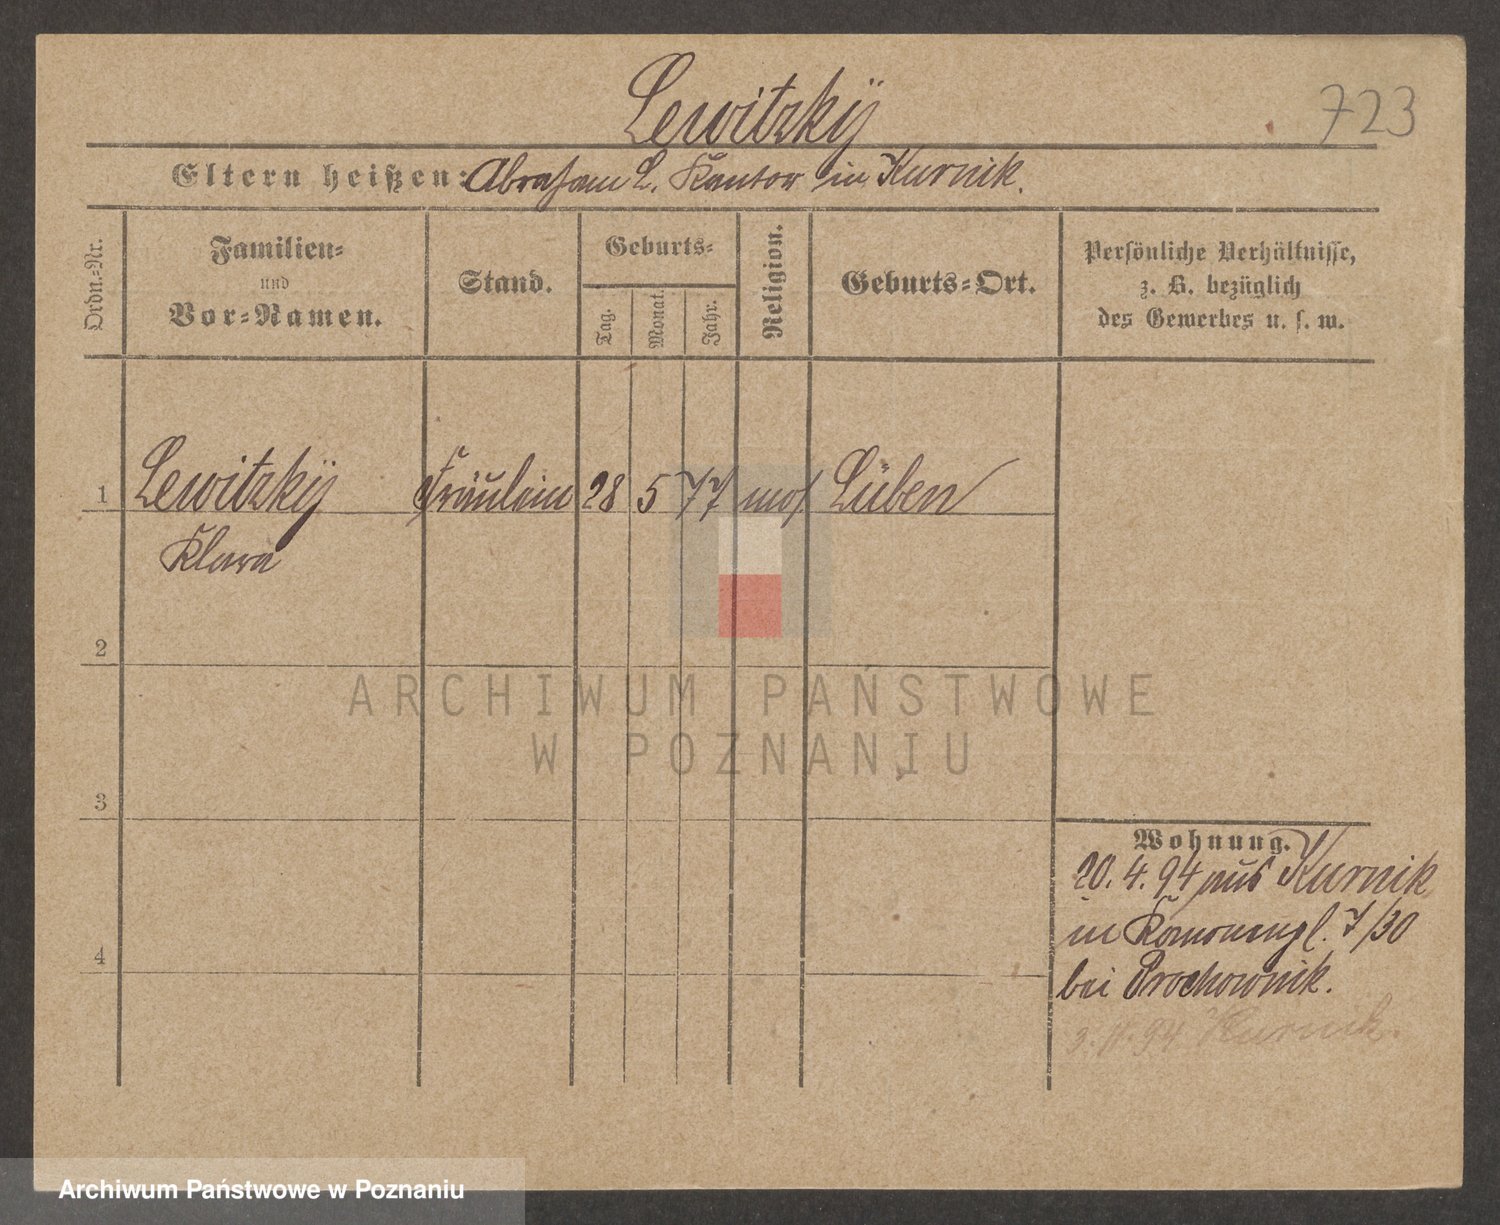 Lewitzky
723
Eltern heißen: Abraham L. Kantor in Kurnik.
Ordn.-Nr.
Familien-
und
Vor-Namen.
Stand.
Geburts-
Tag.
Monat.
Jahr.
Religion.
Geburts-Ort.
Persönliche Verhältnisse,
z. B. bezüglich
des Gewerbes u. s. w.
1 Lewitzky Fräulein 28 5 77 mos. Lüben
Klara
2
ARCHIWUM PAŃSTWOWE
W POZNANIU
3
Wohnung.
20. 4. 94 aus Kurnik
in 7/30
4
bei Prochownik.
3. 11. 94 Kurnik.
Archiwum Państwowe w Poznaniu